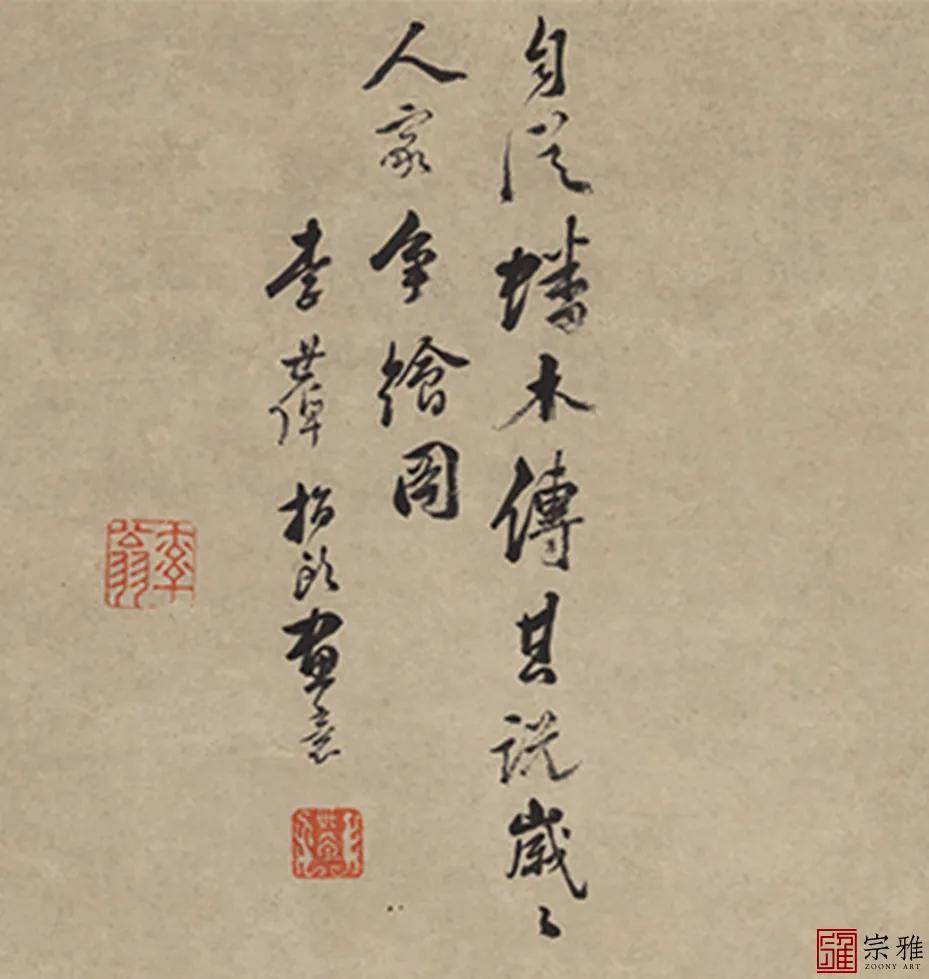 自從蟠木傳其說歲々
人家爭繪圖
李世倬指頭畫意
宗雅
ZOONY ART